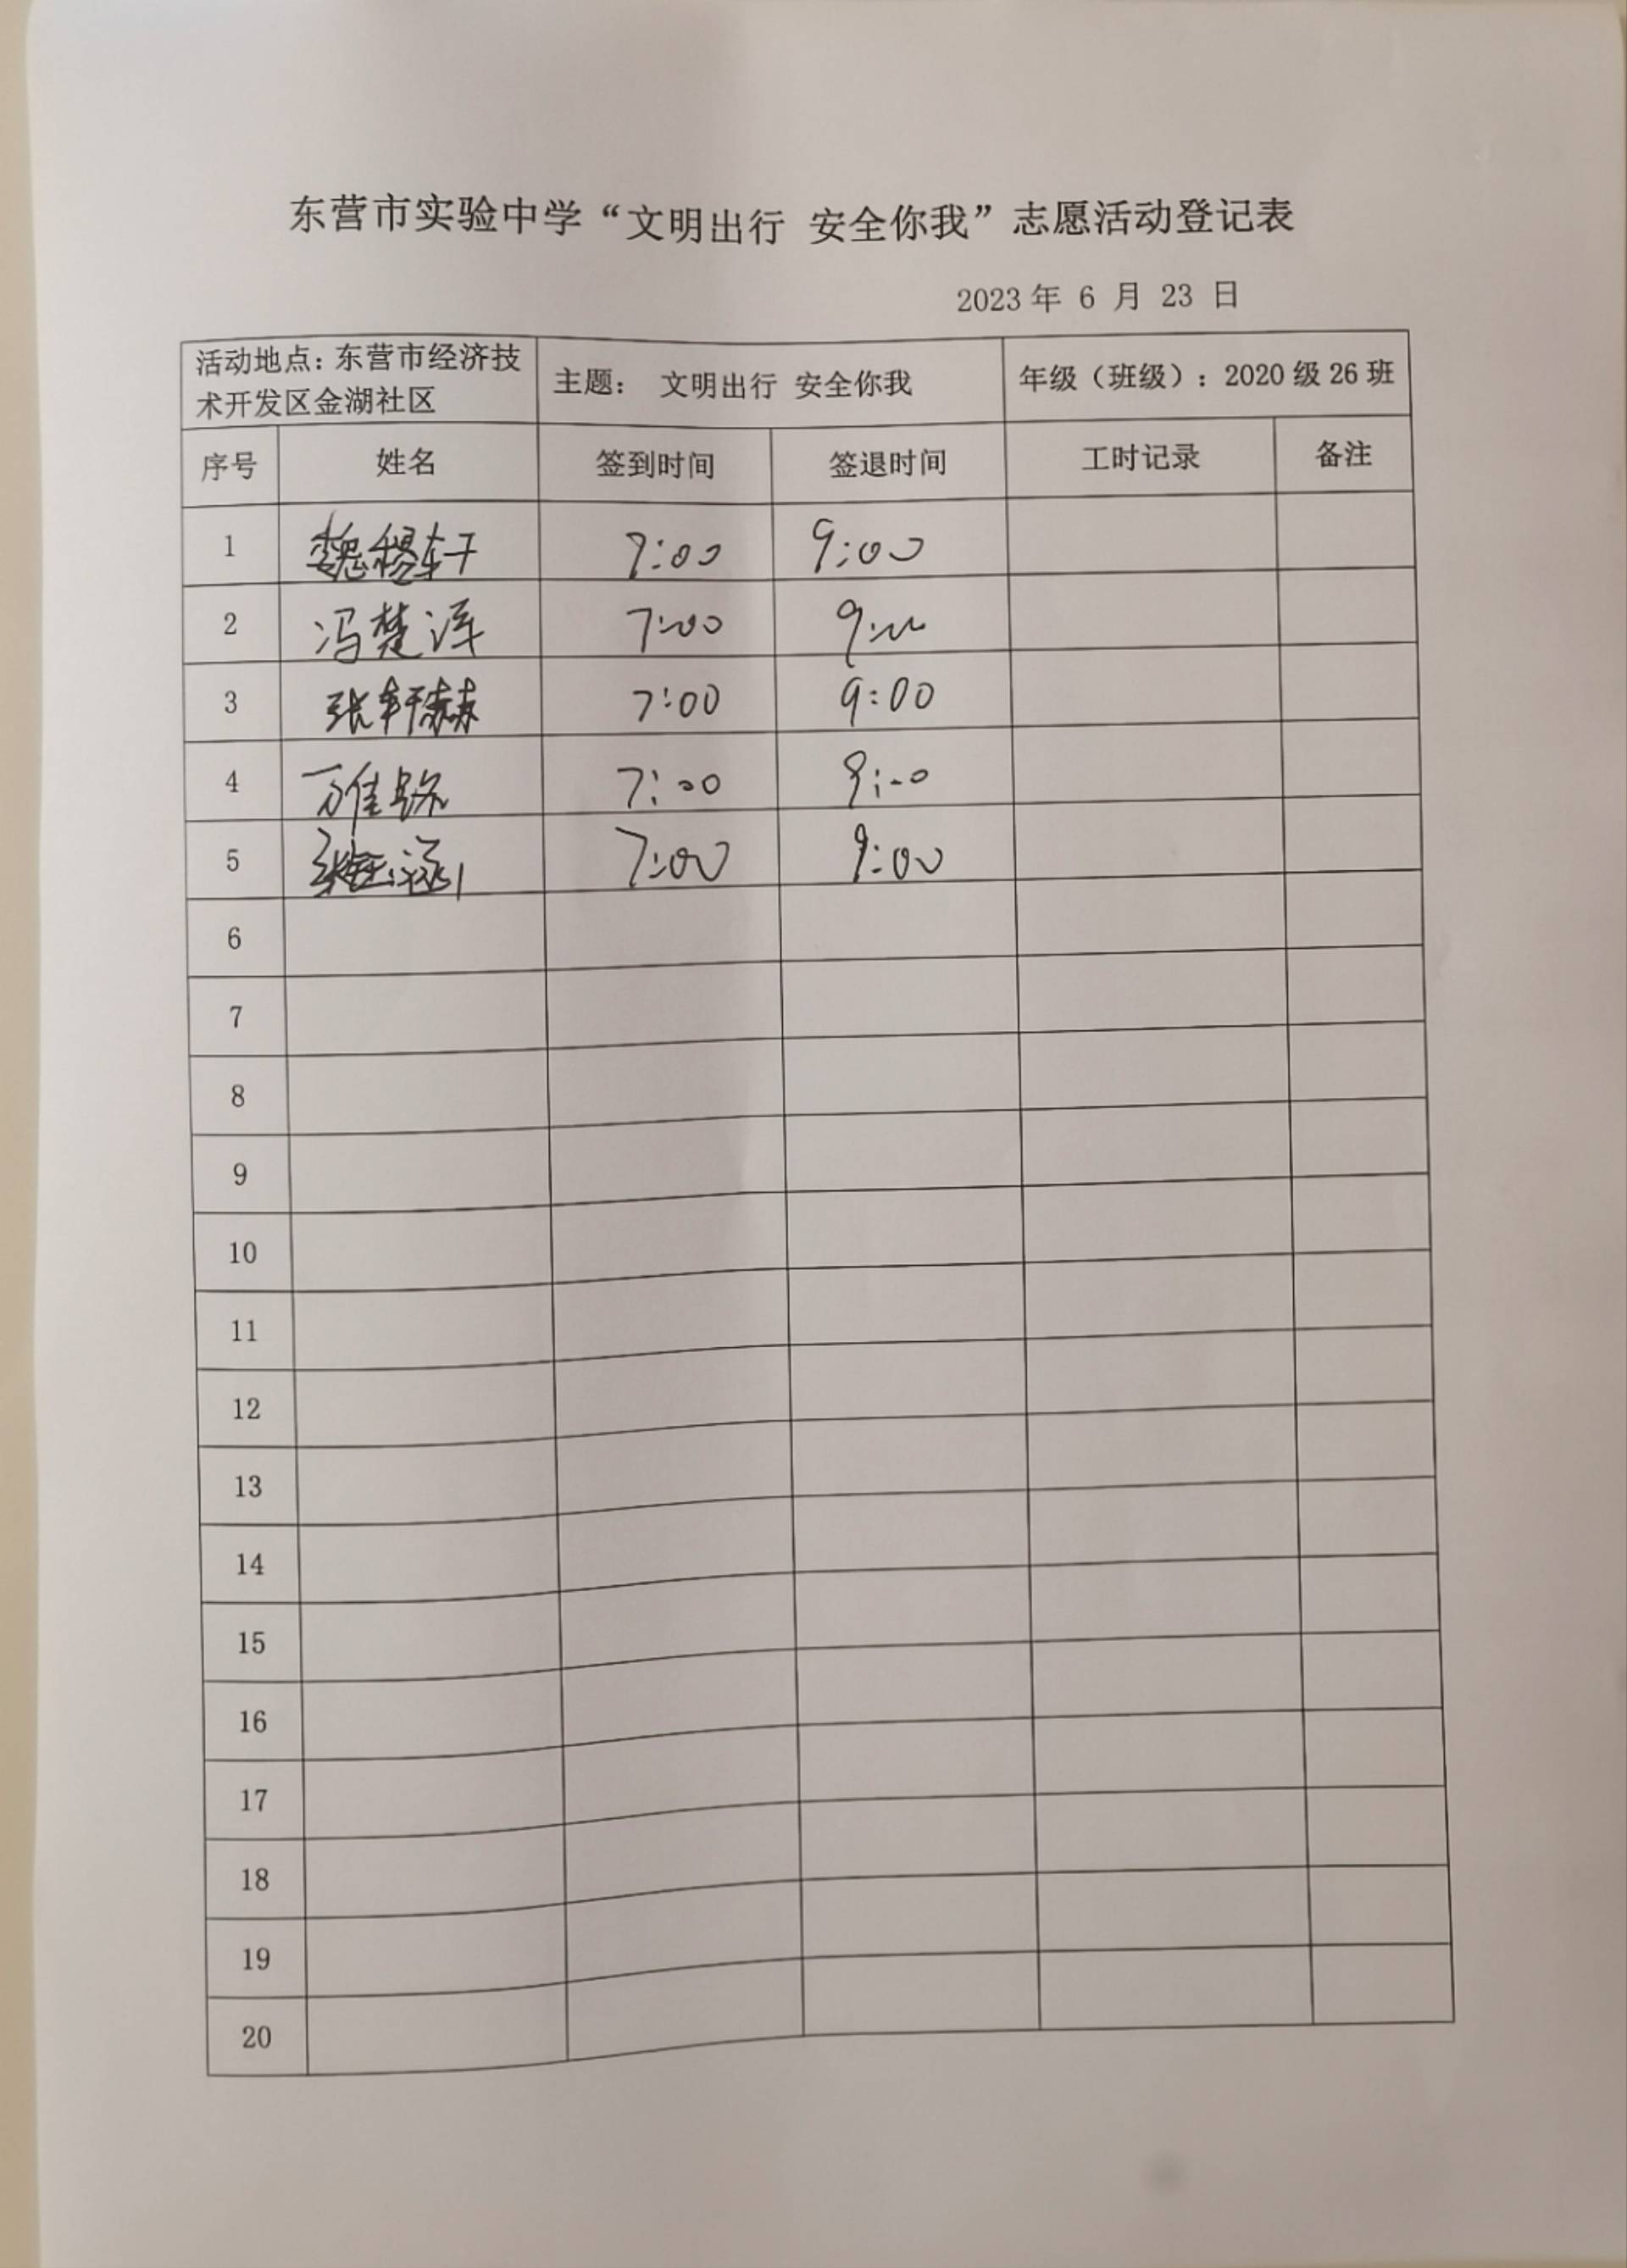 东营市实验中学“文明出行 安全你我”志愿活动登记表
2023年 6 月 23 日
活动地点：东营市经济技
术开发区金湖社区
主题： 文明出行 安全你我
年级（班级）：2020 级 26 班
序号 姓名 签到时间 签退时间 工时记录 备注
1 魏稷轩 7:00 9:00
2 冯楚 7:00 9:00
3 张轩赫 7:00 9:00
4 万佳 7:00 9:00
5 7:00 9:00
6
7
8
9
10
11
12
13
14
15
16
17
18
19
20